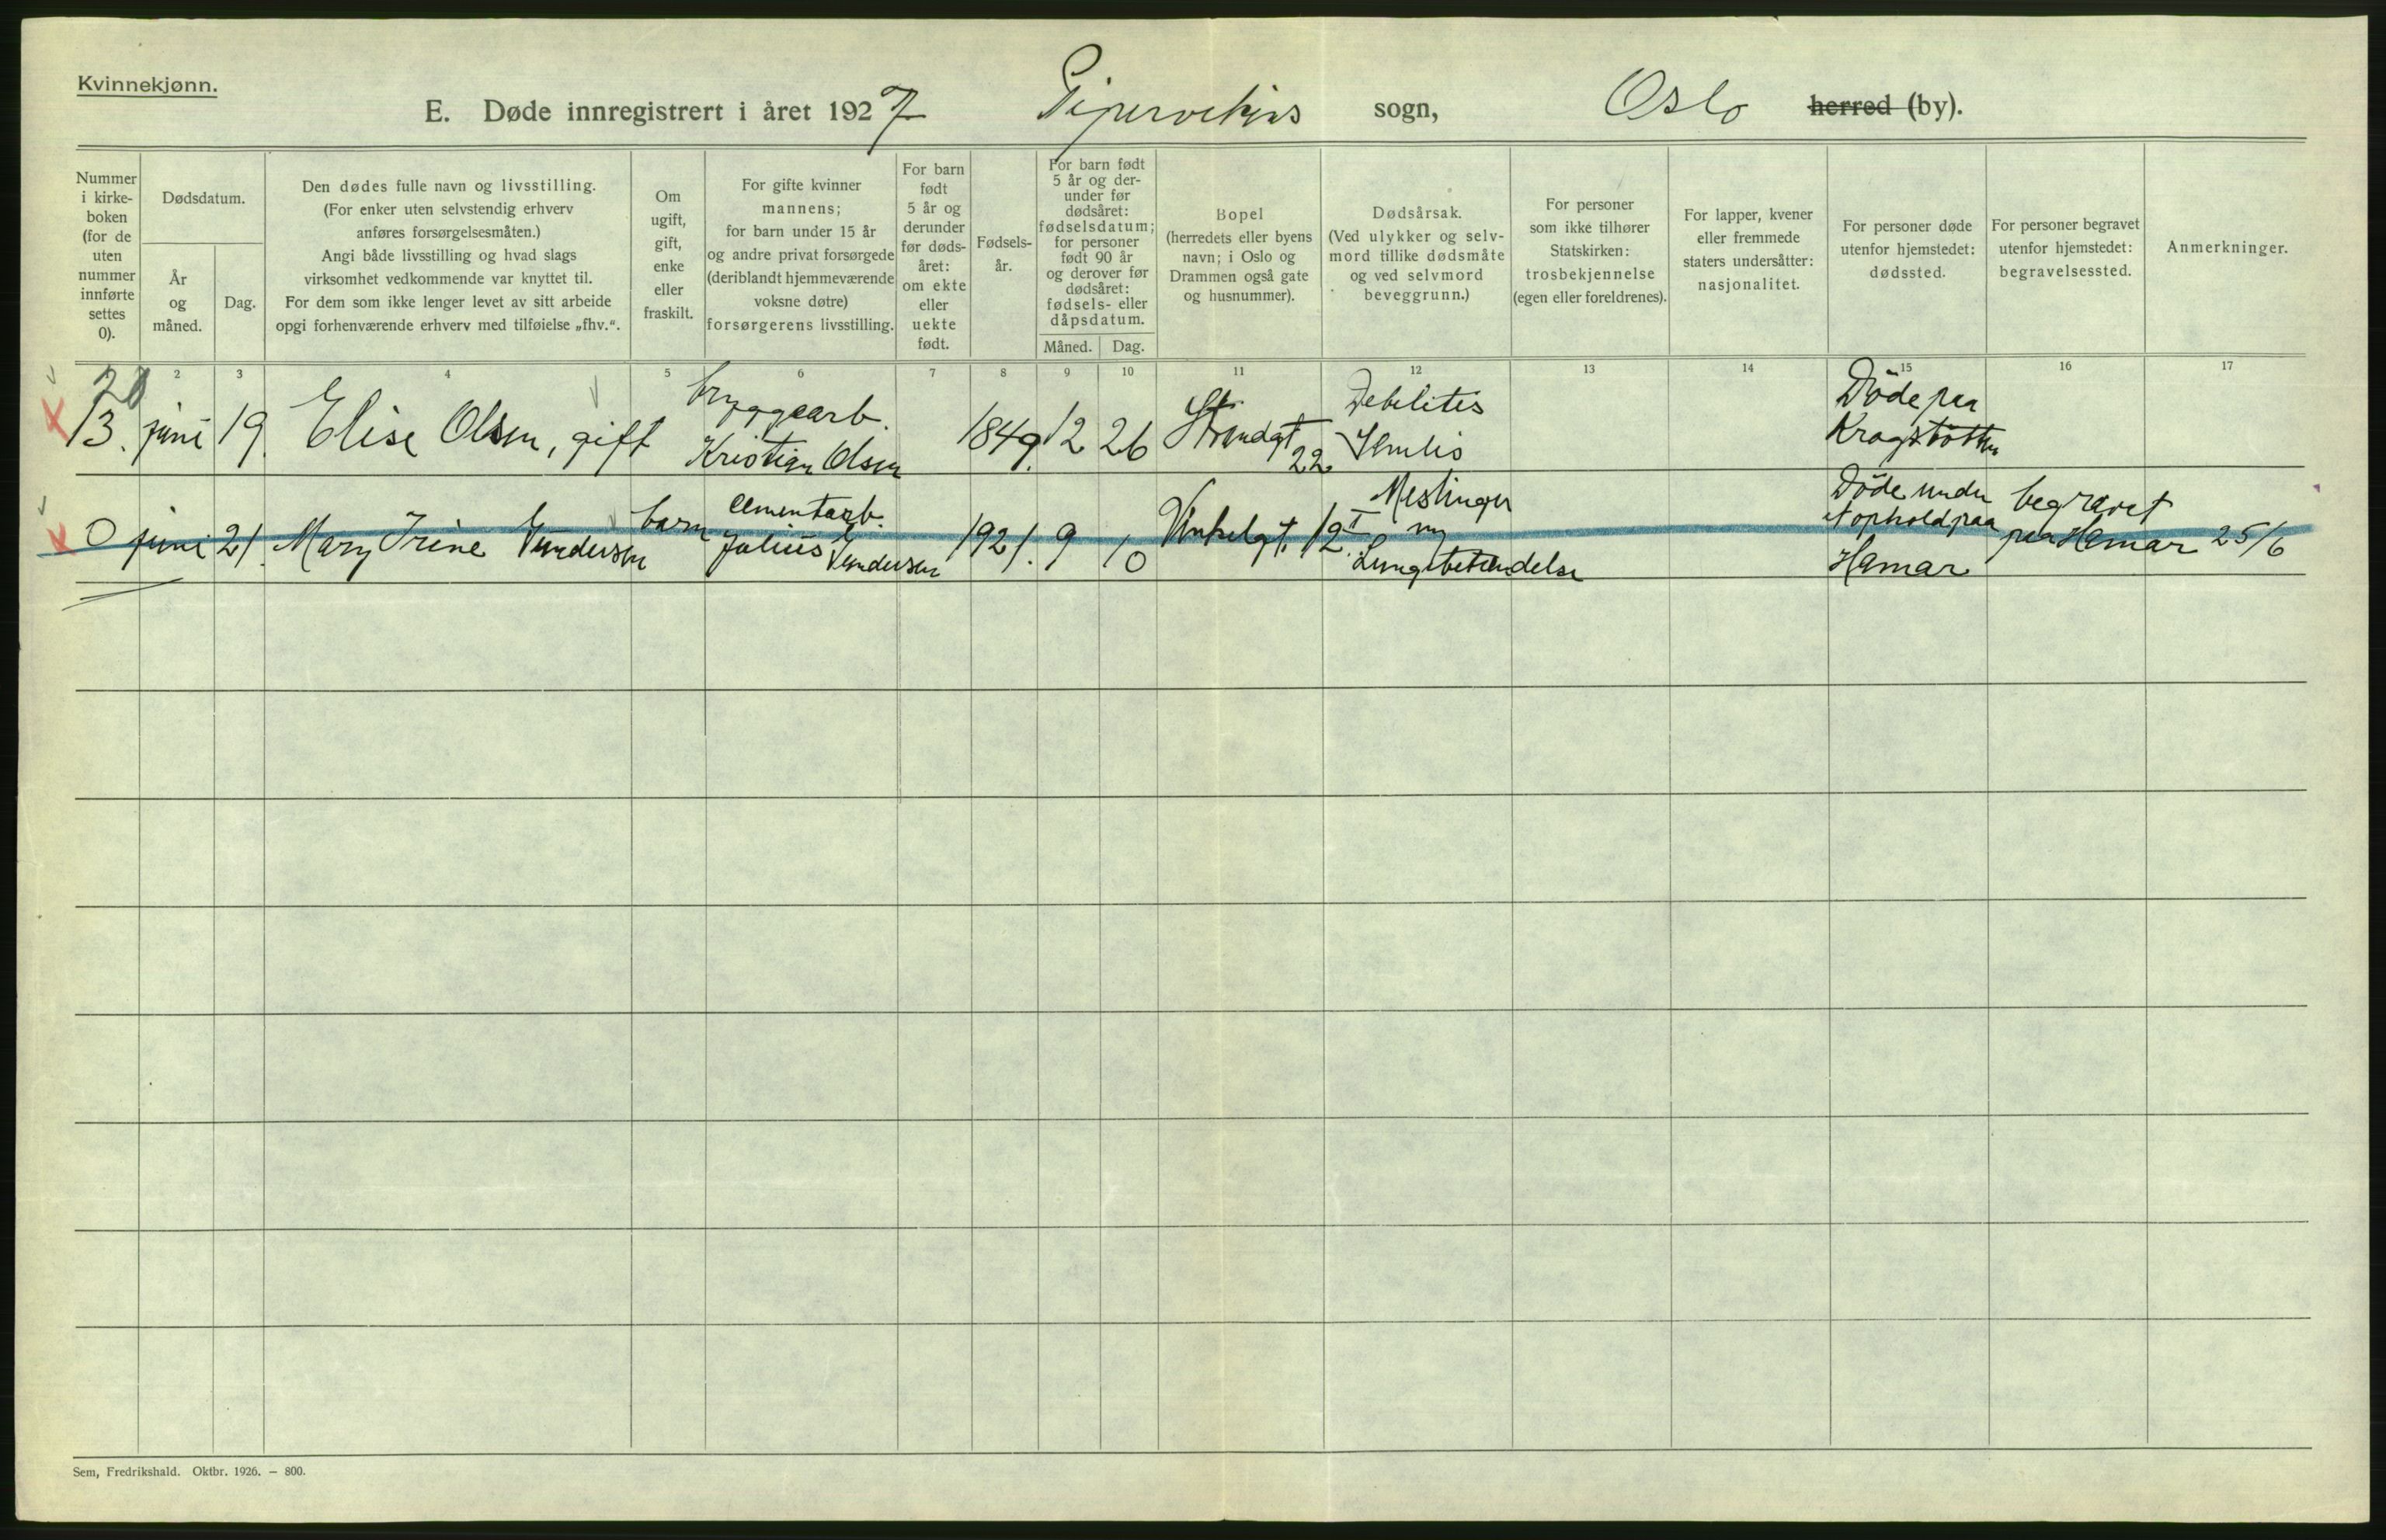 Kvinnekjønn.
E. Døde innregistrert i året 1927 Pipervekjns sogn, Oslo herred (by).
Nummer
i kirke-
boken
(for de
uten
nummer
innførte
settes
0).
Dødsdatum.
År
og
måned.
Dag.
Den dødes fulle navn og livsstilling.
(For enker uten selvstendig erhverv
anføres forsørgelsesmåten.)
Angi både livsstilling og hvad slags
virksomhet vedkommende var knyttet til.
For dem som ikke lenger levet av sitt arbeide
opgi forhenværende erhverv med tilføielse „fhv.“.
Om
ugift,
gift,
enke
eller
fraskilt.
For gifte kvinner
mannens;
for barn under 15 år
og andre privat forsørgede
(deriblandt hjemmeværende
voksne døtre)
forsørgerens livsstilling.
For barn
født
5 år og
derunder
før døds-
året:
om ekte
eller
uekte
født.
Fødsels-
år.
For barn født
5 år og der-
under før
dødsåret:
fødselsdatum;
for personer
født 90 år
og derover før
dødsåret:
fødsels- eller
dåpsdatum.
Måned. Dag.
Bopel
(herredets eller byens
navn; i Oslo og
Drammen også gate
og husnummer).
Dødsårsak.
(Ved ulykker og selv-
mord tillike dødsmåte
og ved selvmord
beveggrunn.)
For personer
som ikke tilhører
Statskirken:
trosbekjennelse
(egen eller foreldrenes).
For lapper, kvener
eller fremmede
staters undersåtter:
nasjonalitet.
For personer døde
utenfor hjemstedet:
dødssted.
For personer begravet
utenfor hjemstedet:
begravelsessted.
Anmerkninger.
2 3 4 5 6 7 8 9 10 11 12 13 14 15 16 17
20
13. juni 19. Elise Olsen, gift
bryggearb.
Kristian Olsen
1849. 12 26
Strandgt
22
Debilitis
Senilis
Döde paa
Kragstötten
0 juni 21. Mary Irene Gundersen
barn
cementarb.
Julius Gundersen
1921. 9 10
Vinkelgt. 12 I
Meslinger
og
Lungebetendelse
Döde under
et ophold paa
Hamar
begravet
paa Hamar 25/6
Sem, Fredrikshald. Oktbr. 1926. — 800.